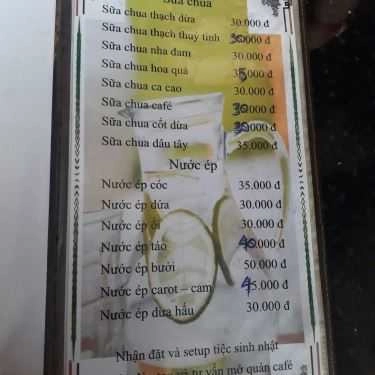 Sữa chua
Sữa chua thạch dừa 30.000 đ
Sữa chua thạch thuỷ tinh 30.000 đ
Sữa chua nha đam 30.000 đ
Sữa chua hoa quả 35.000 đ
Sữa chua ca cao 30.000 đ
Sữa chua café 30.000 đ
Sữa chua cốt dừa 30.000 đ
Sữa chua dâu tây 35.000 đ
Nước ép
Nước ép cóc 35.000 đ
Nước ép dứa 30.000 đ
Nước ép ổi 30.000 đ
Nước ép táo 40.000 đ
Nước ép bưởi 50.000 đ
Nước ép carot – cam 45.000 đ
Nước ép dưa hấu 30.000 đ
Nhận đặt và setup tiệc sinh nhật
tư vấn mở quán café